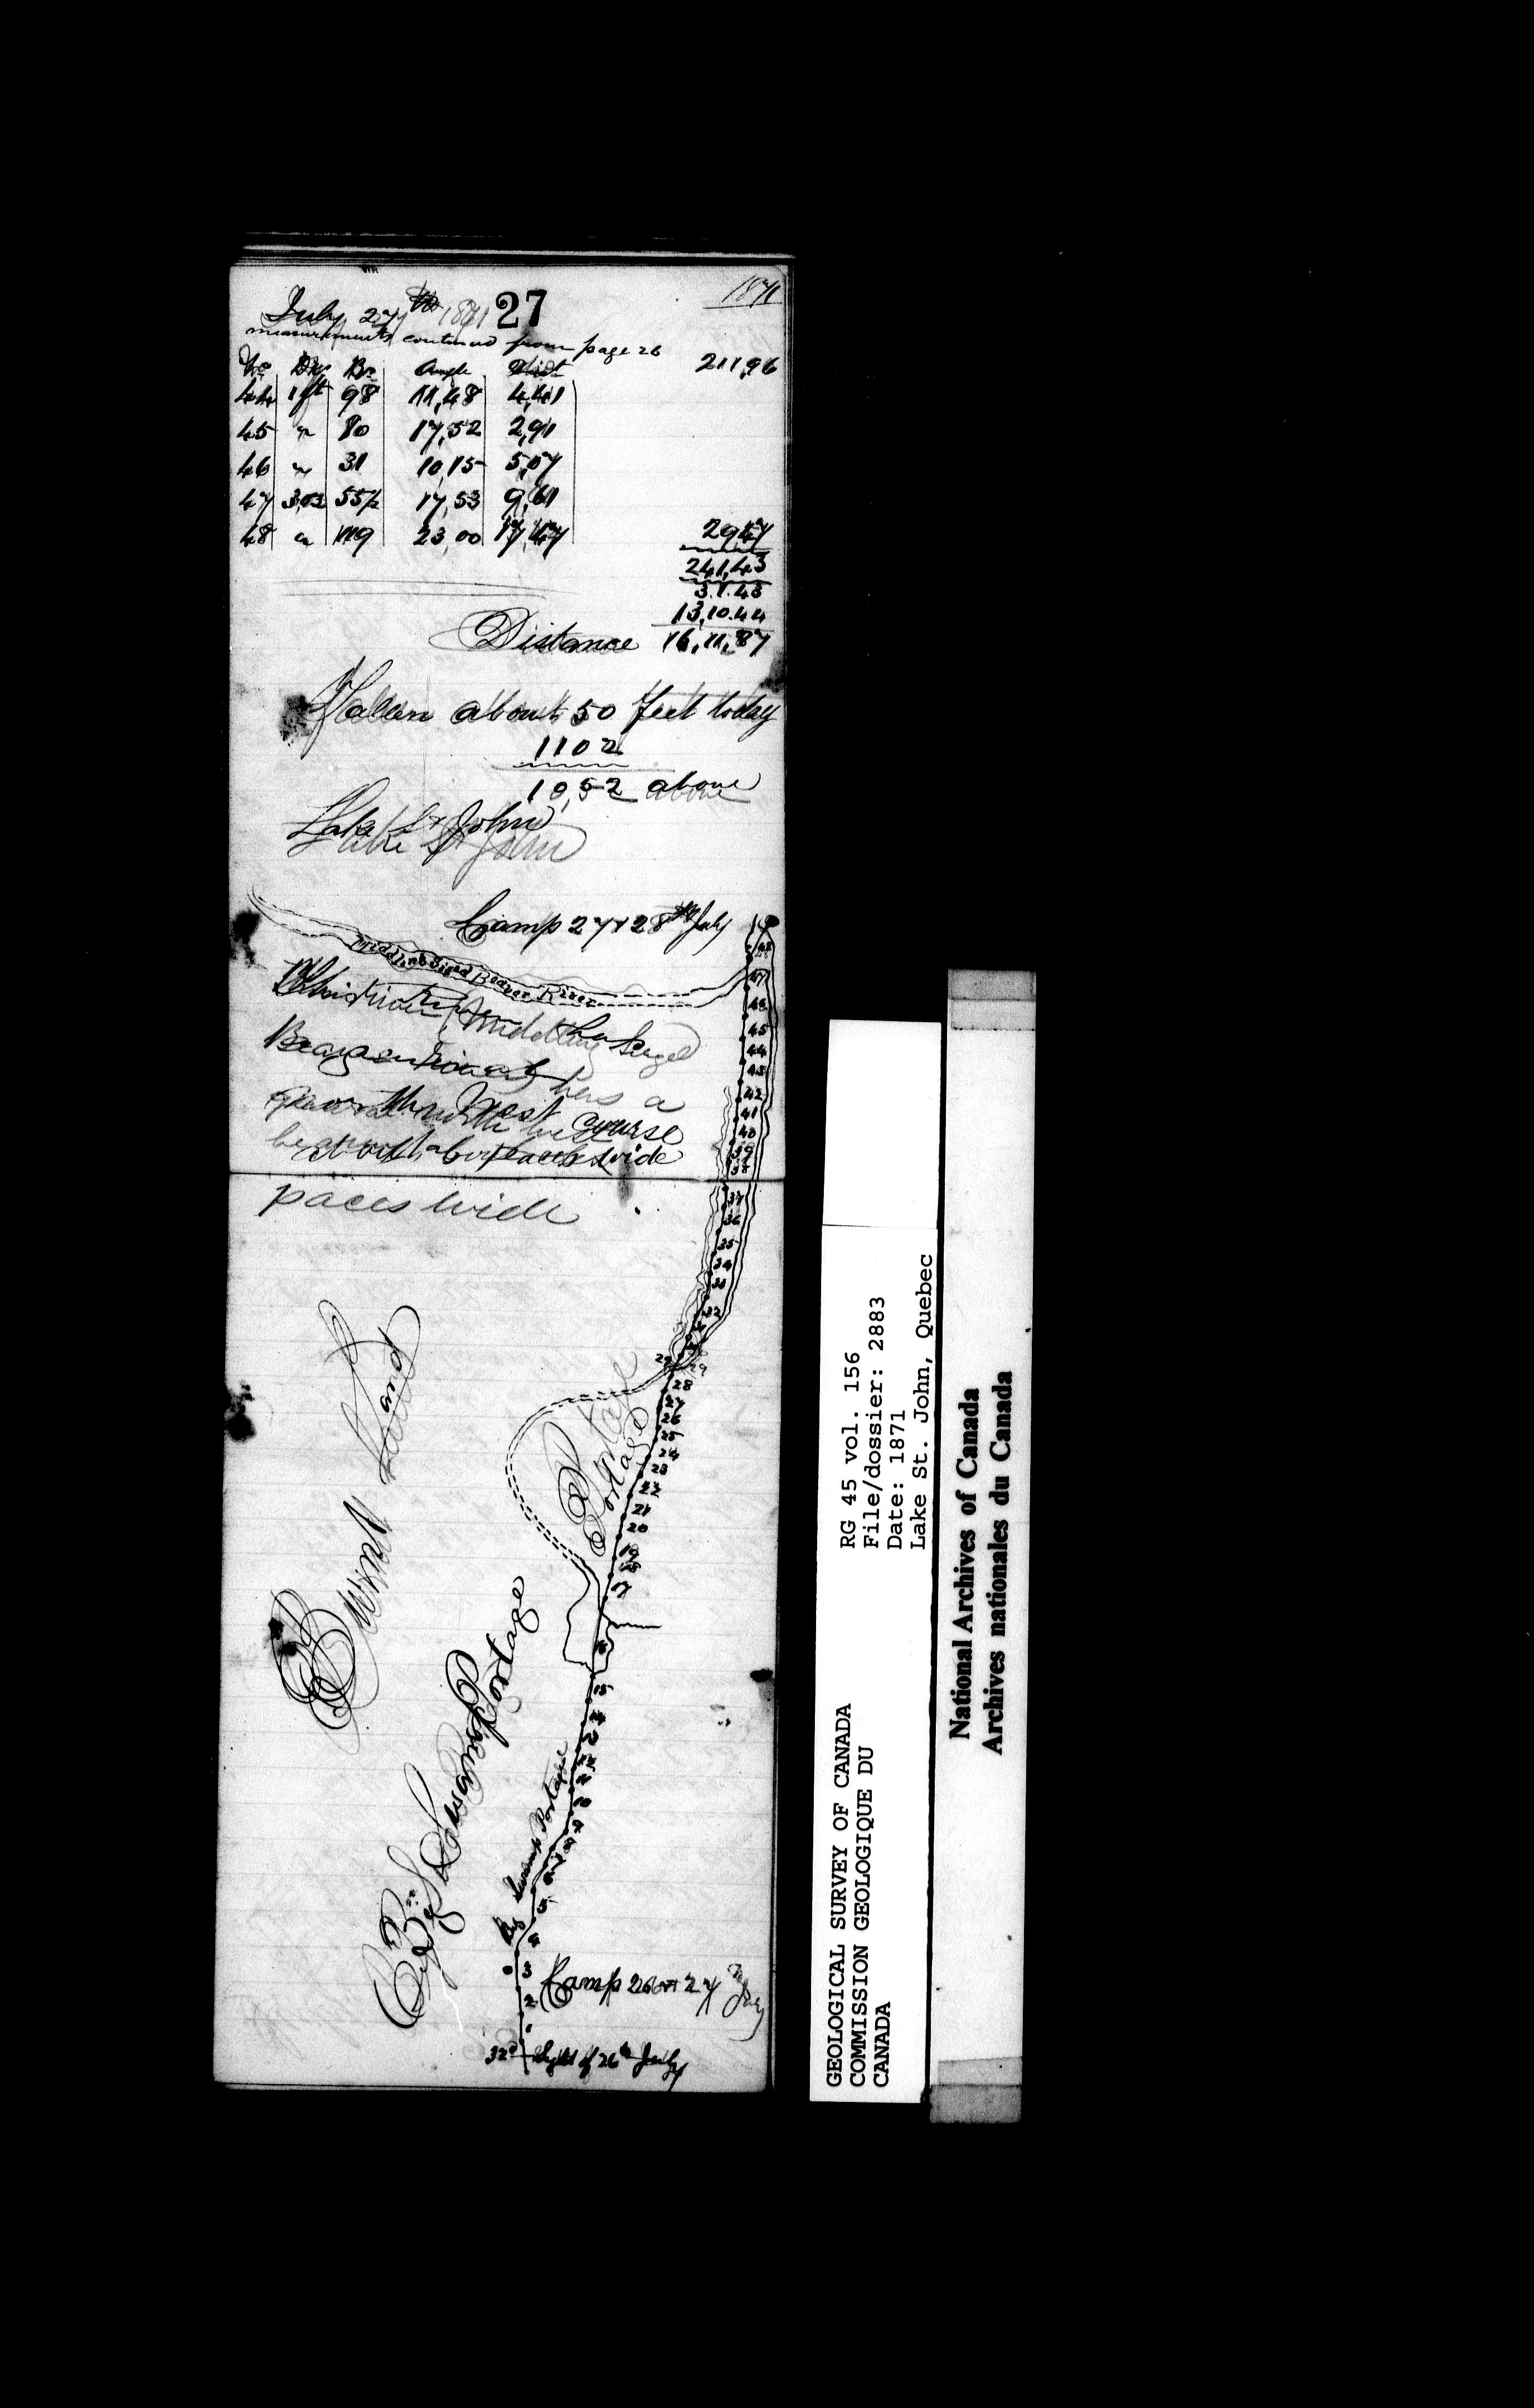 1871
July 27th 1871 27
measurements continued from page 26
211,96
No Br Angle Dist
44 1ft 98 11,48 4,41
45 " 80 17,52 2,91
46 " 31 10,15 5,07
47 3,03 55½ 17,53 9,61
48 " 119 23,00 17,47
29,47
241,43
3.1.43
13,10.44
Distance 16,11,87
Fallen about 50 feet today
1102
1052 above
Lake St John
Lake St John
Camp 27 & 28th July
Middling Sized Beaver River
This river (Middling Sized
has a
west course
wide
paces wide
48
47
46
45
44
43
42
41
40
39
38
37
36
35
34
33
32
29 29
28
27
26
25
24
23
22
21
20
19
18
17
16
15
14
10
9
5
4
3
2
1
Portage
Portage
Burnt Land
Big Swamp Portage
Big Swamp Portage
Camp 26 & 27th July
32d Sight of 26th July
RG 45 vol. 156
File/dossier: 2883
Date: 1871
Lake St. John, Quebec
GEOLOGICAL SURVEY OF CANADA
COMMISSION GEOLOGIQUE DU
CANADA
National Archives of Canada
Archives nationales du Canada